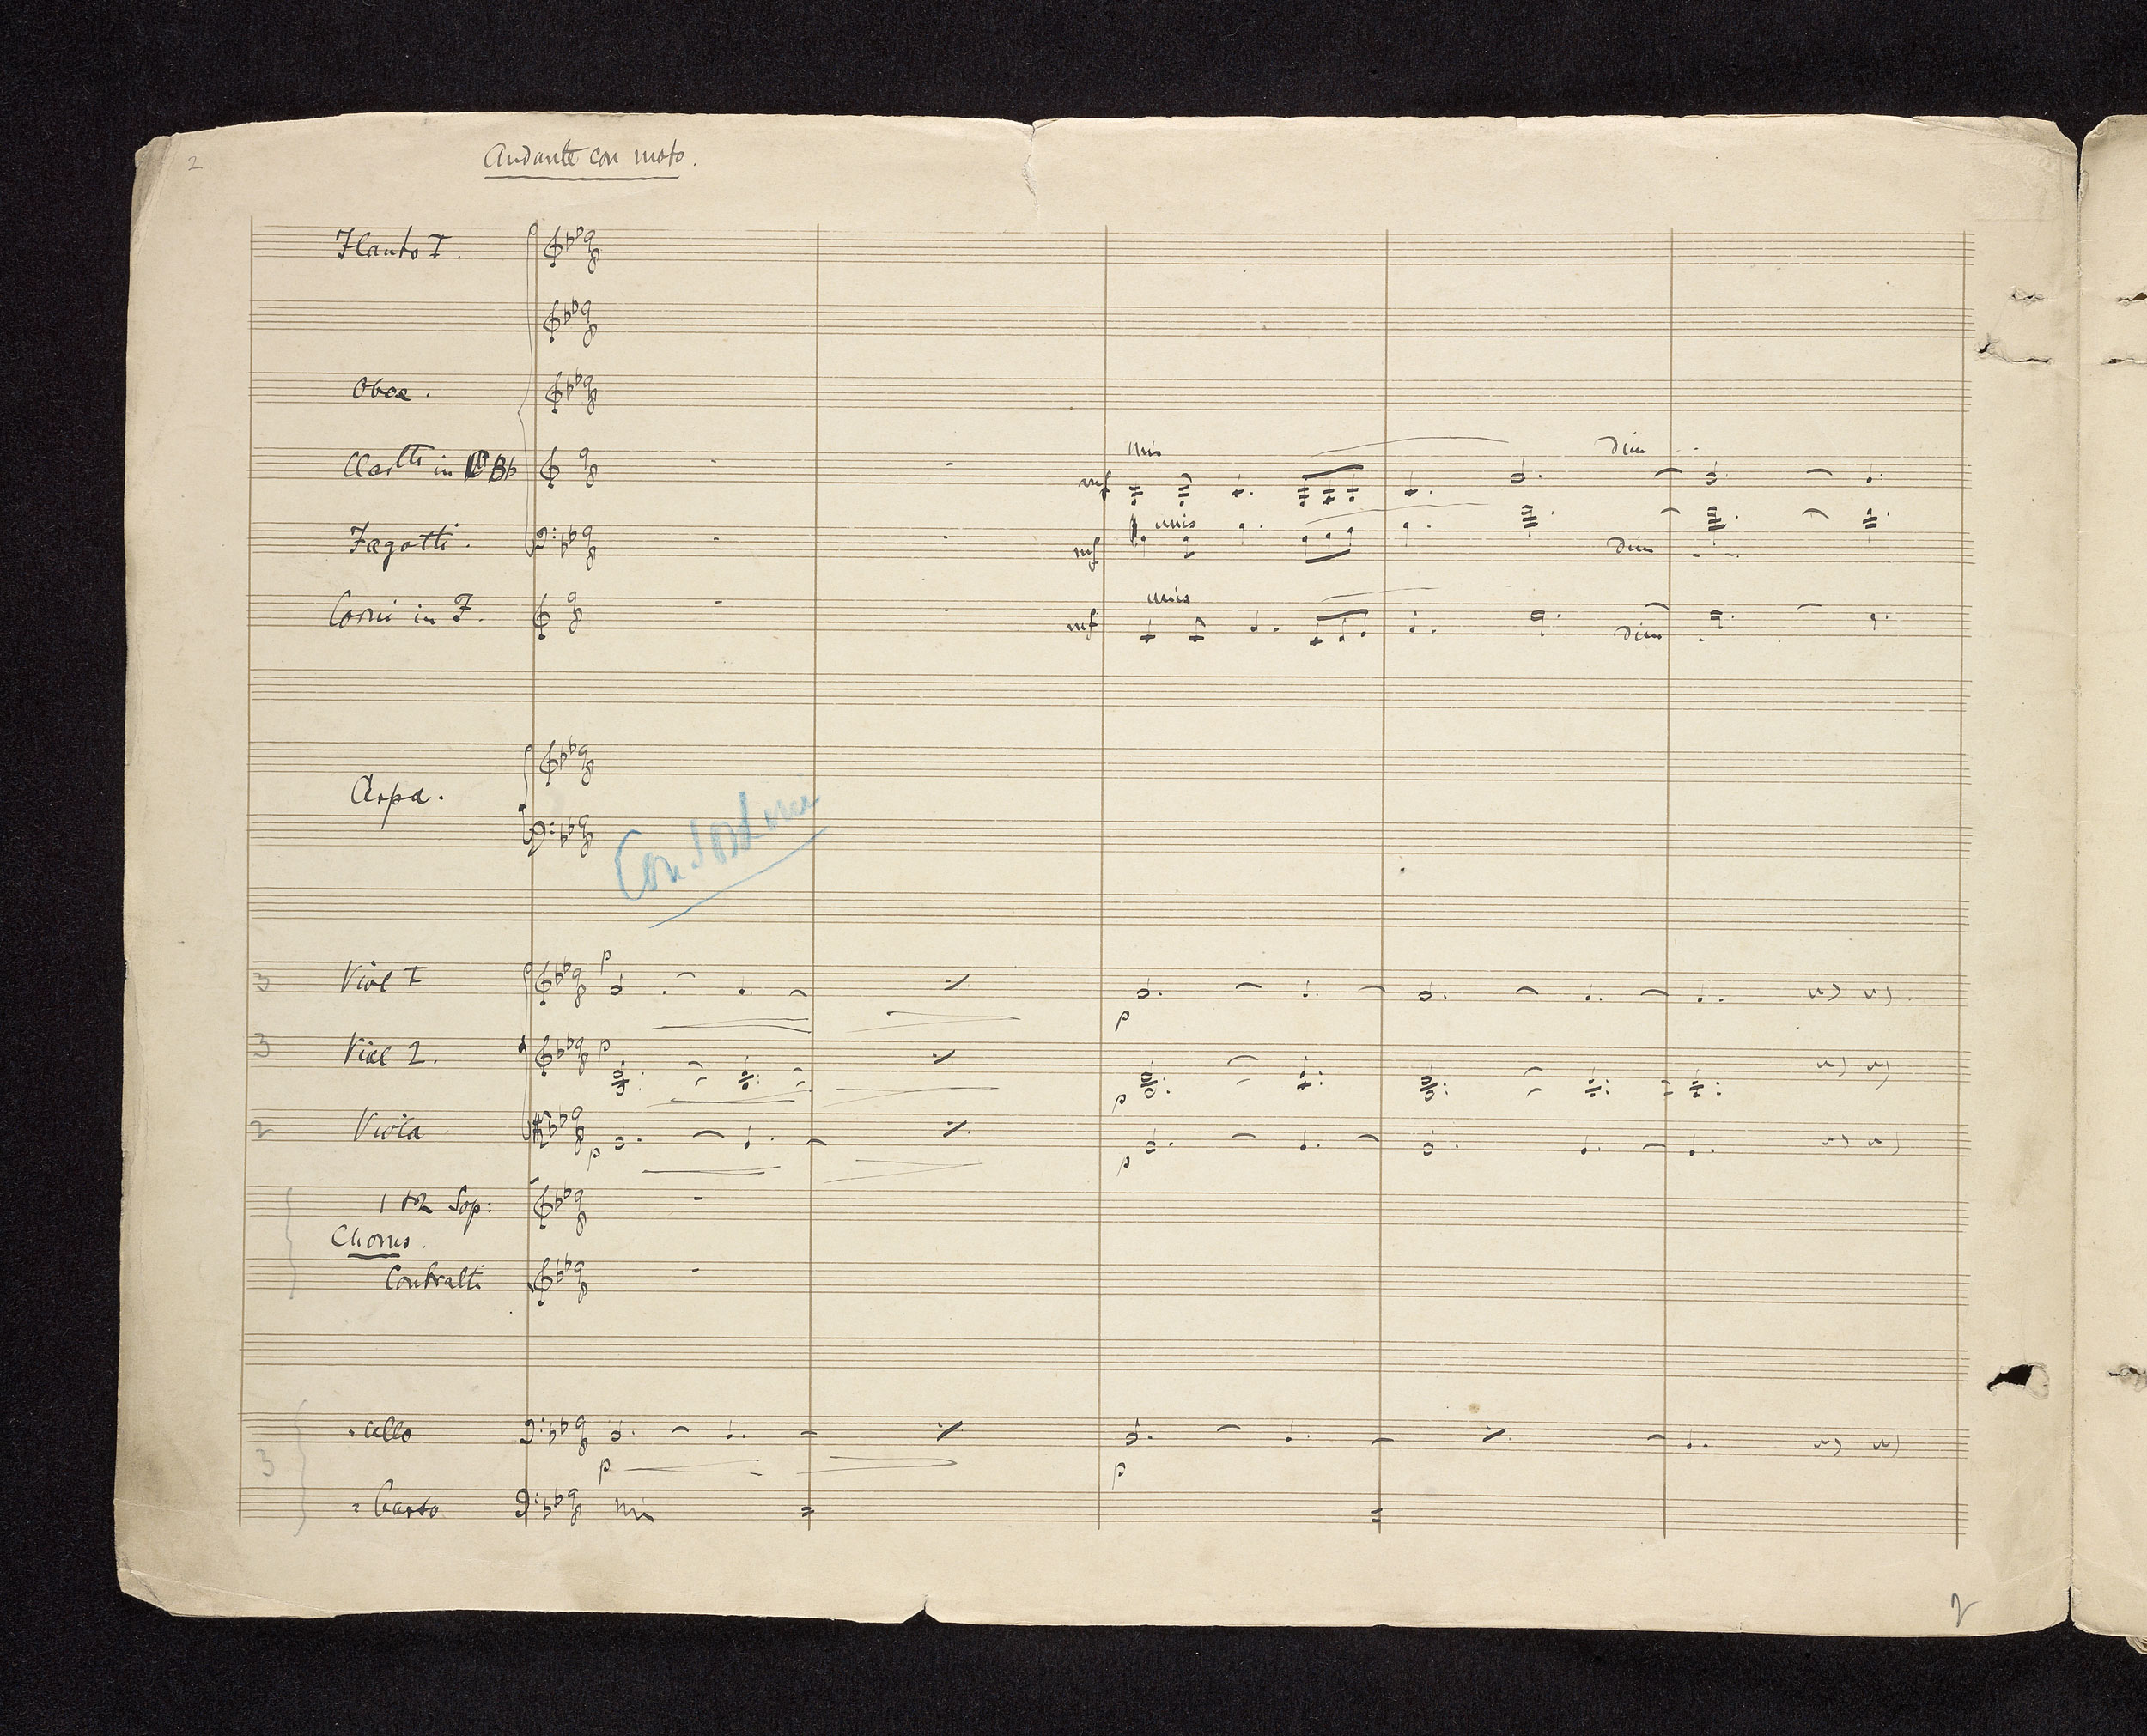 2
Andante con moto.
Flauto I.
Oboe.
Cartti in Bb
unis
dim
mf
Fagotti.
unis
mf
dim
Corni in F.
unis
mf
dim
Arpa.
Con sordini
3 Viol I
p
p
3 Viol 2.
p
p
2 Viola
p
p
1 & 2 Sop:
Chorus.
Contralti
Cello
3
p
p
Basso
2